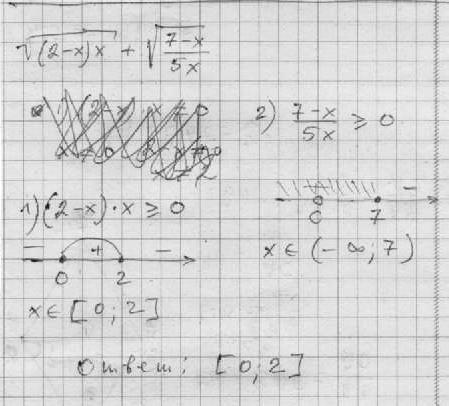 √(2-x)x + √7-x/5x
1) (2-x)·x ≥ 0
- + -
0 2
x ∈ [0; 2]
2) 7-x/5x ≥ 0
-
0 7
x ∈ (-∞; 7)
Ответ: [0; 2]